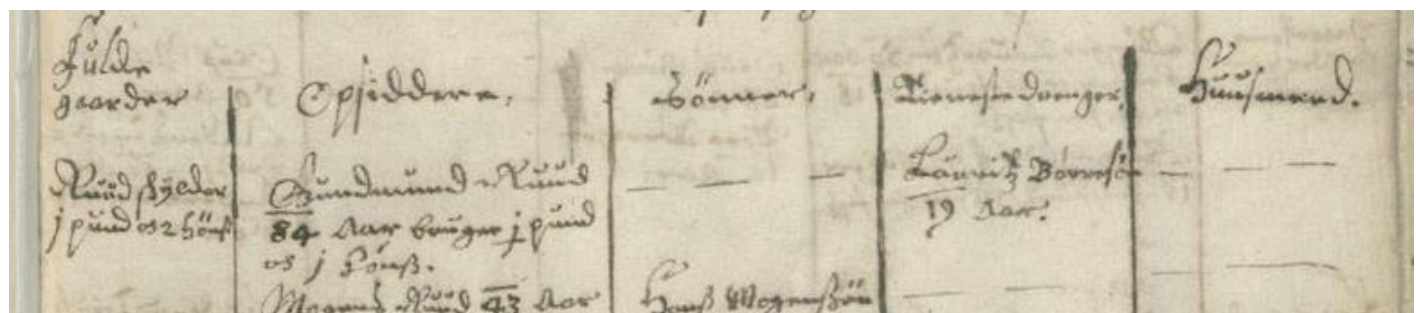 Fulde
gaarder
Opsiddere,
Sönner,
Tienestedrenger,
Huusmend.
Ruud skylder
j pund os 2 höns
Gundmund Ruud
84 Aar bruger j pund
os j höns.
Lauritz Börresön
19 Aar.
Mogens Ruud 43 Aar
Hans Mogensßön